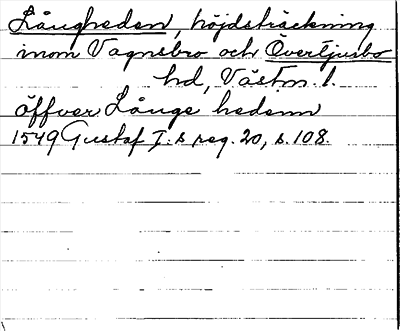 Långheden, höjdsträckning
inom Vagnsbro och Övertjurbo
hd, Västm. l.
öffver Långe hedenn
1549 Gustaf I:s reg. 20, s. 108.